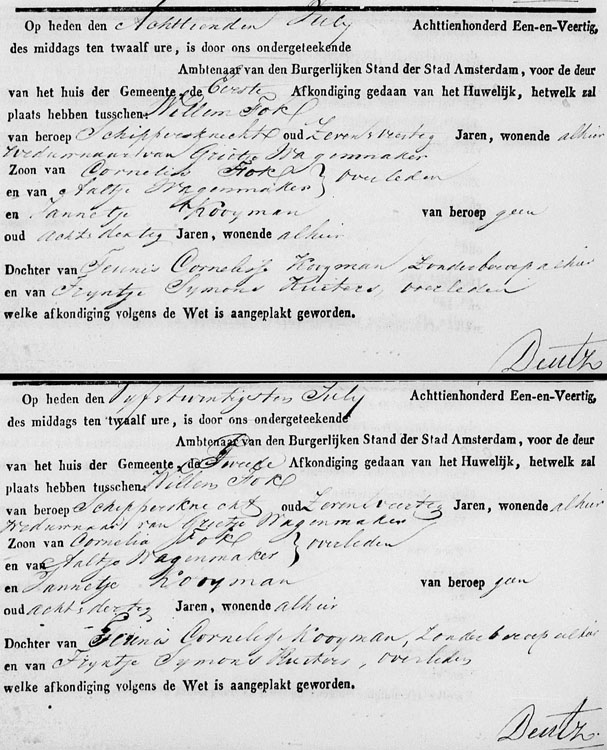 Op heden den Achttienden July Achttienhonderd Een-en-Veertig,
des middags ten twaalf ure, is door ons ondergeteekende
Ambtenaar van den Burgerlijken Stand der Stad Amsterdam, voor de deur
van het huis der Gemeente, de Eerste Afkondiging gedaan van het Huwelijk, hetwelk zal
plaats hebben tusschen: Willem Fok
van beroep Schippersknecht oud Zevenveertig Jaren, wonende alhier
Weduwnaar van Grietje Wagenmaker
Zoon van Cornelis Fok } overleden
en van Aaltje Wagenmaker
en Jannetje Kooyman van beroep geen
oud achtsdertig Jaren, wonende alhier
Dochter van Teunis Cornelisse Kooyman, Zonder beroep alhier
en van Tryntje Symons Kuiters, overleden
welke afkondiging volgens de Wet is aangeplakt geworden.
Deutz
Op heden den Vyfentwintigsten July Achttienhonderd Een-en-Veertig,
des middags ten twaalf ure, is door ons ondergeteekende
Ambtenaar van den Burgerlijken Stand der Stad Amsterdam, voor de deur
van het huis der Gemeente, de Tweede Afkondiging gedaan van het Huwelijk, hetwelk zal
plaats hebben tusschen: Willem Fok
van beroep Schippersknecht oud Zevenveertig Jaren, wonende alhier
Weduwnaar van Grietje Wagenmaker
Zoon van Cornelis Fok } overleden
en van Aaltje Wagenmaker
en Jannetje Kooyman van beroep geen
oud achtsdertig Jaren, wonende alhier
Dochter van Teunis Cornelisse Kooyman, Zonder beroep alhier
en van Tryntje Symons Kuiters, overleden
welke afkondiging volgens de Wet is aangeplakt geworden.
Deutz